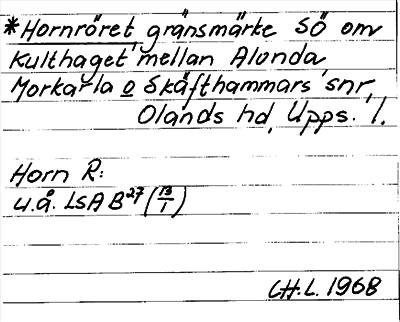 *Hornröret gränsmärke SÖ om
Kulthaget mellan Alunda,
Morkarla o Skäfthammars snr,
Olands hd, Upps. l.
Horn R:
u.å. LSA B27 (13/1)
CH.L. 1968